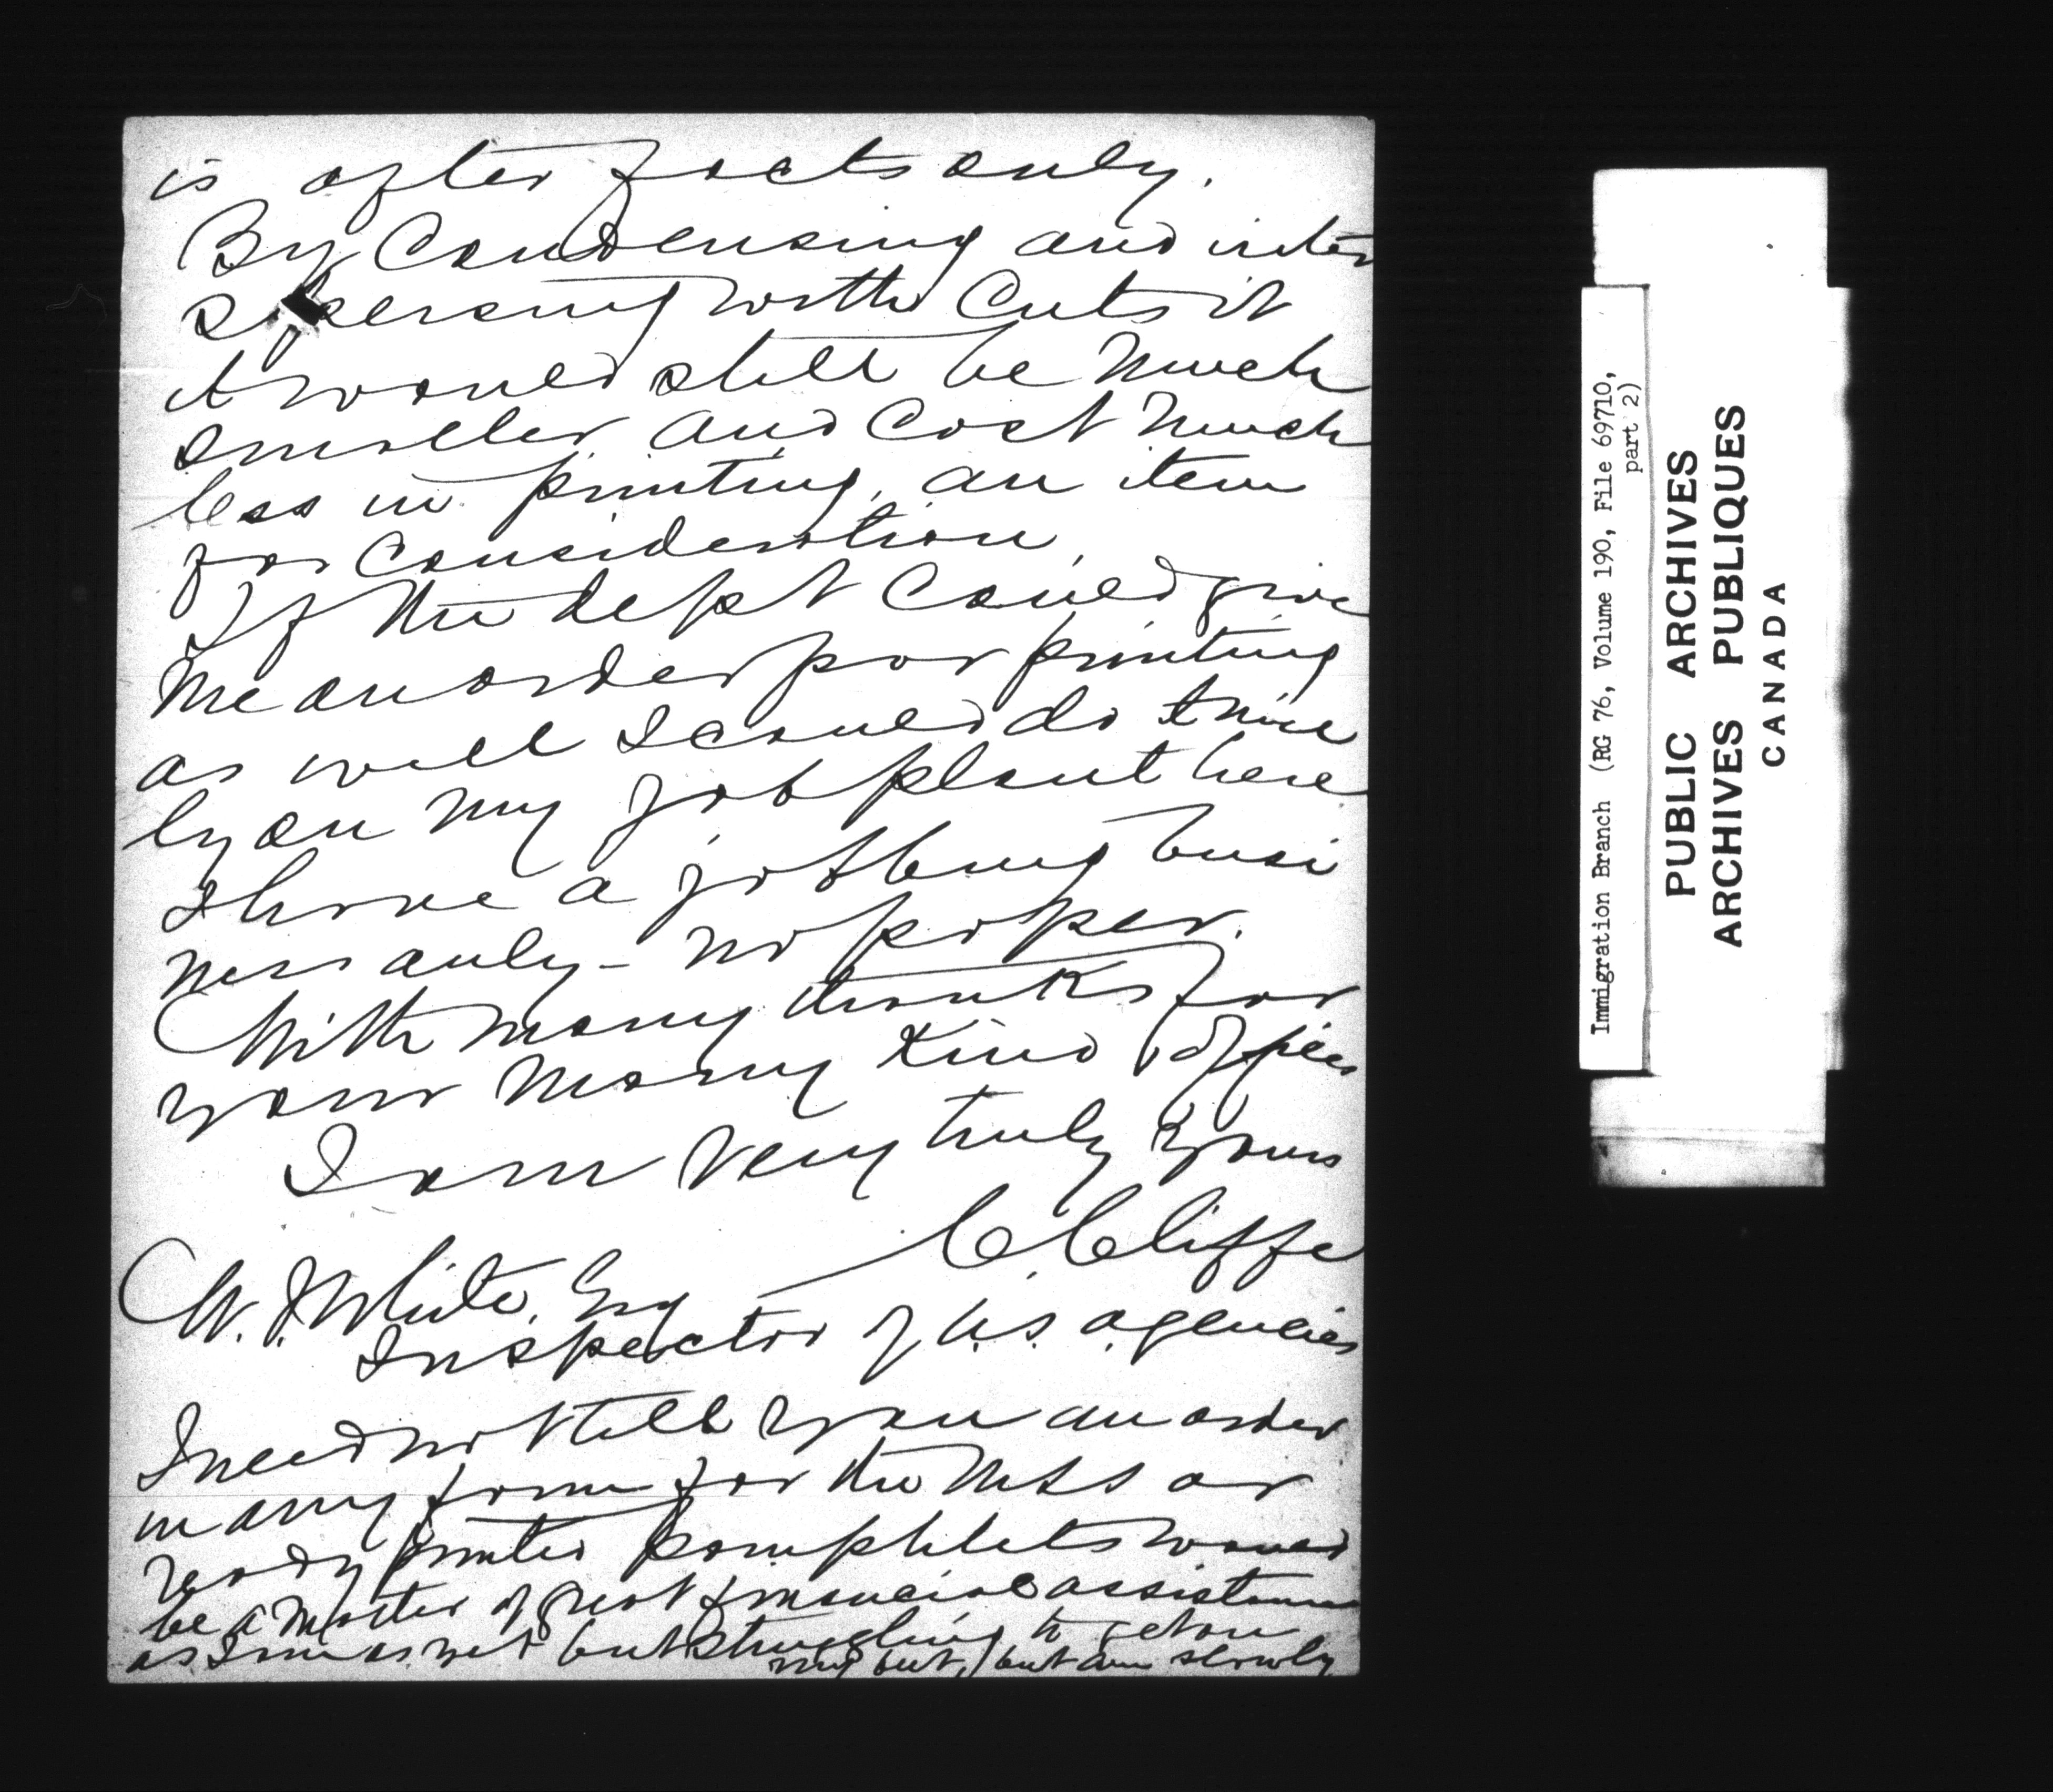 is after facts only.
By Condensing and inter
spersing with Cuts it
it would still be Much
smaller and Cost Much
less in printing, an item
for Consideration.
If the dept Could give
Me an order for printing
as well I could do it nice
ly on my job plant here
I have a jobbing busi
ness only - no paper.
With many thanks for
your many kind offices
I am Very truly yours
C Cliffe
W. J. White, Esq
Inspector of U.S. agencies
I need not tell you an order
in any form for the MSS or
ready printed pamphlets would
be a Matter of great financial assistance
as I am as yet but struggling to get on
my but, but am slowly
Immigration Branch (RG 76, Volume 190, File 69710,
part 2)
PUBLIC ARCHIVES
ARCHIVES PUBLIQUES
CANADA